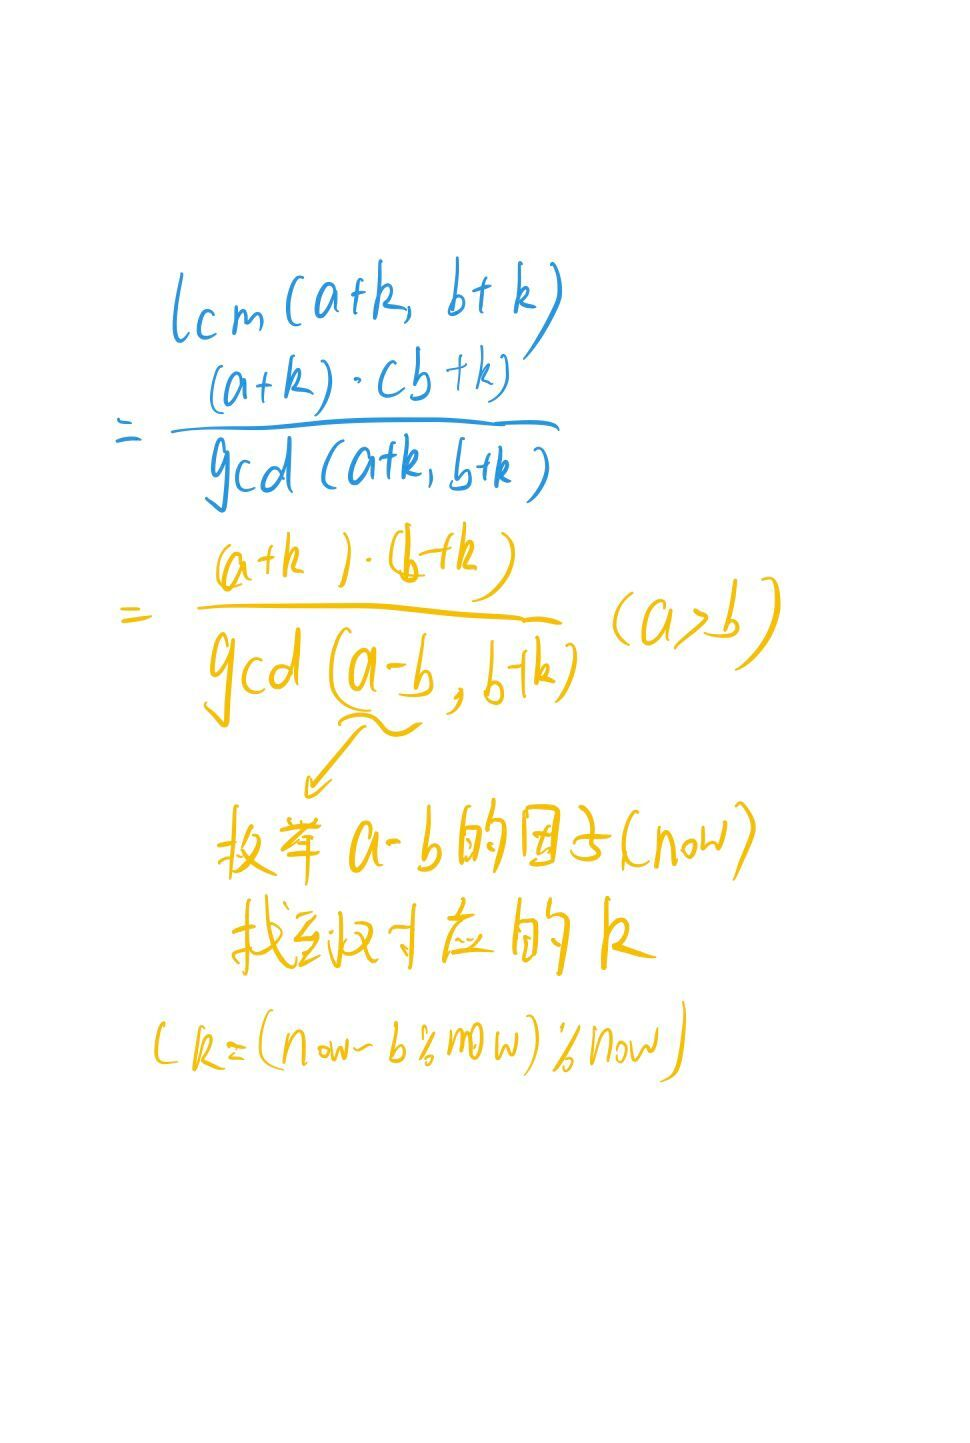 lcm(a+k, b+k)
(a+k)·(b+k)
=
gcd(a+k, b+k)
(a+k)·(b+k)
= (a>b)
gcd(a-b, b+k)
枚举 a-b的因子(now)
找到对应的k
(k=(now-b%now)%now)